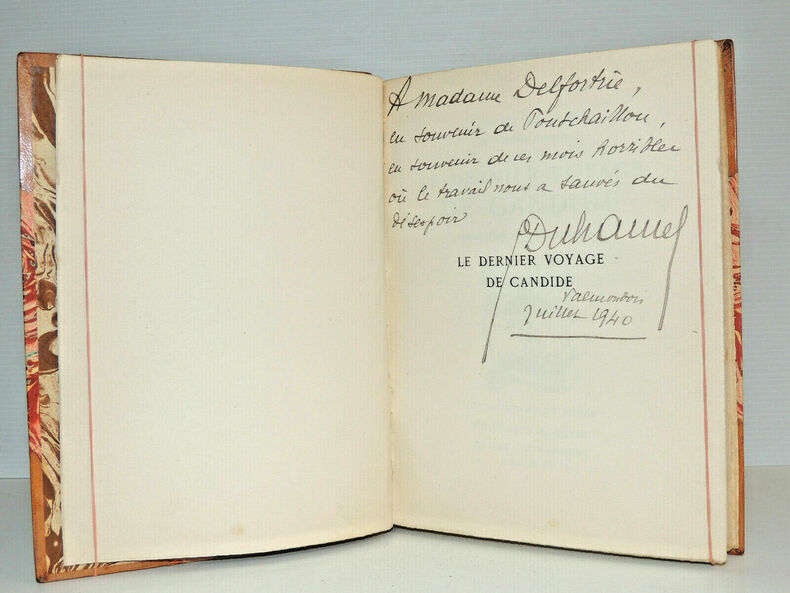 A Madame Delfortrie,
en souvenir de Pontchaillou,
en souvenir de ces mois horribles
où le travail nous a sauvés du
désespoir
GDuhamel
LE DERNIER VOYAGE
DE CANDIDE
Valmondois
Juillet 1940